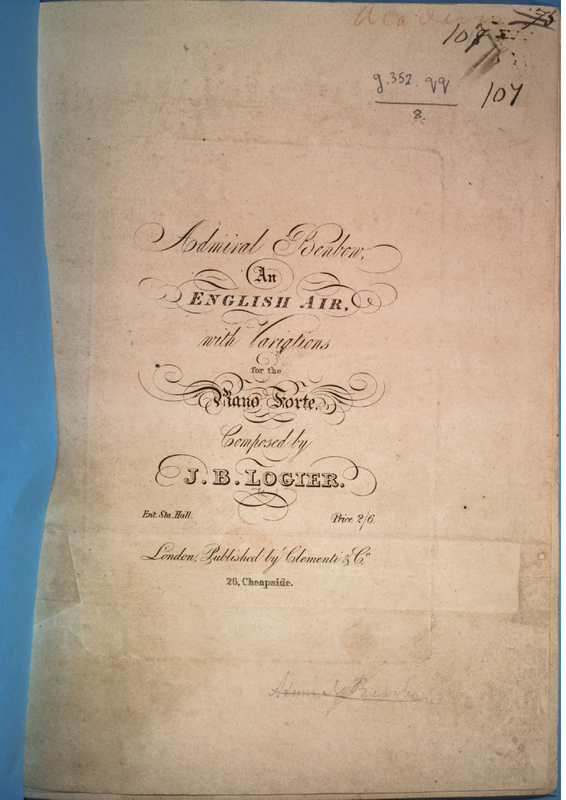 75
107
g.352.qq
8.
107
Admiral Benbow,
An
ENGLISH AIR,
with Variations
for the
Piano Forte,
Composed by
J. B. LOGIER.
Ent. Sta. Hall. Price 2/6.
London, Published by Clementi & Co.
26, Cheapside.
Admiral Benbow